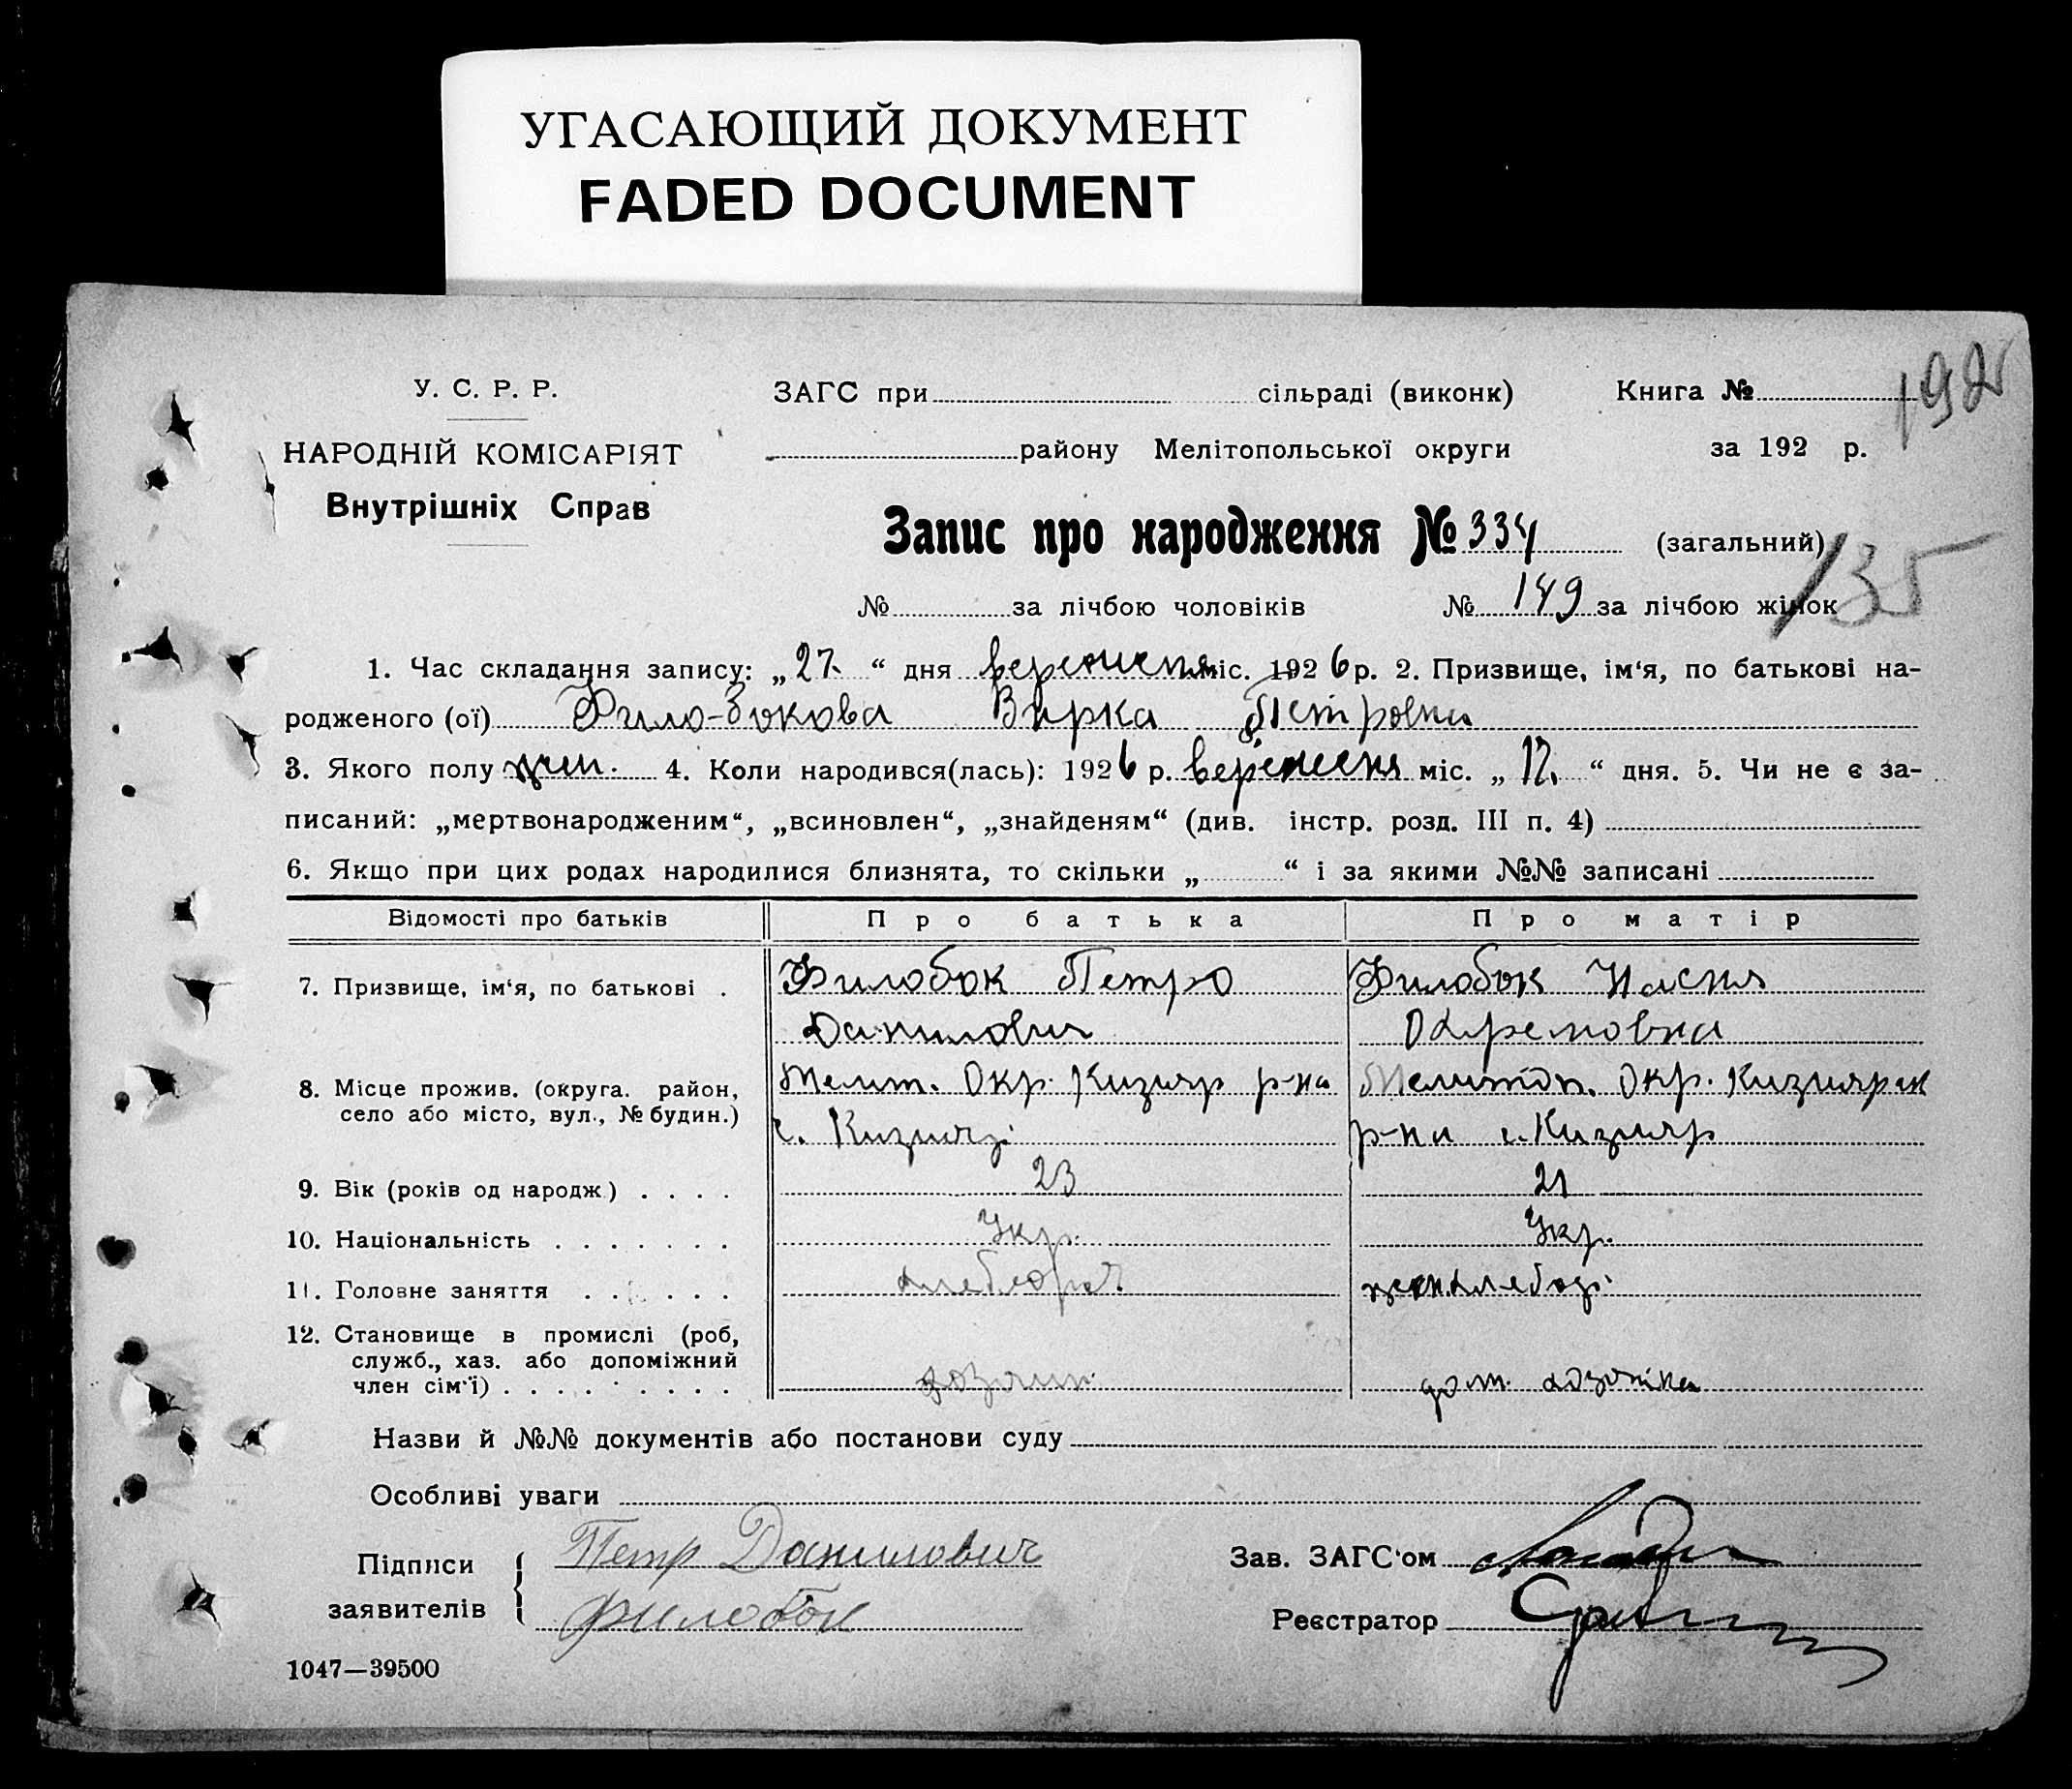 УГАСАЮЩИЙ ДОКУМЕНТ
FADED DOCUMENT
192
У. С. Р. Р.
ЗАГС при сільраді (виконк) Книга №
НАРОДНІЙ КОМІСАРІЯТ
району Мелітопольської округи за 192 р.
Внутрішніх Справ
Запис про народження № 334 (загальний)
135
№ за лічбою чоловіків № 149 за лічбою жінок
1. Час складання запису: „27“ дня вересня міс. 1926 р. 2. Призвище, ім‘я, по батькові на-
родженого (ої) Фило-бокова Вірка Петровна
3. Якого полу жен. 4. Коли народився(лась): 1926 р. вересня міс. „12.“ дня. 5. Чи не є за-
писаний: „мертвонародженим“, „всиновлен“, „знайденям“ (див. інстр. розд. III п. 4)
6. Якщо при цих родах народилися близнята, то скільки „ “ і за якими №№ записані
Відомості про батьків Про батька Про матір
7. Призвище, ім‘я, по батькові . Филобок Петро Филобок Насня
Данилович Охремовна
8. Місце прожив. (округа. район, Мелит. Окр. Кизияр р-на Мелитоп. Окр. Кизиярск
село або місто, вул., № будин.) с. Кизияр. р-на с. Кизияр
9. Вік (років од народж) . . . . 23 21
10. Національність . . . . . . . Укр. Укр.
11. Головне заняття . . . . . . хлебороб жен. хлебор.
12. Становище в промислі (роб,
служб., хаз. або допоміжний
член сім‘ї) . . . . . . . . . хозяин. дом. хозяйка
Назви й №№ документів або постанови суду
Особливі уваги
Підписи Петр Данилович Зав. ЗАГС‘ом
заявителів Филобок Реєстратор
1047—39500